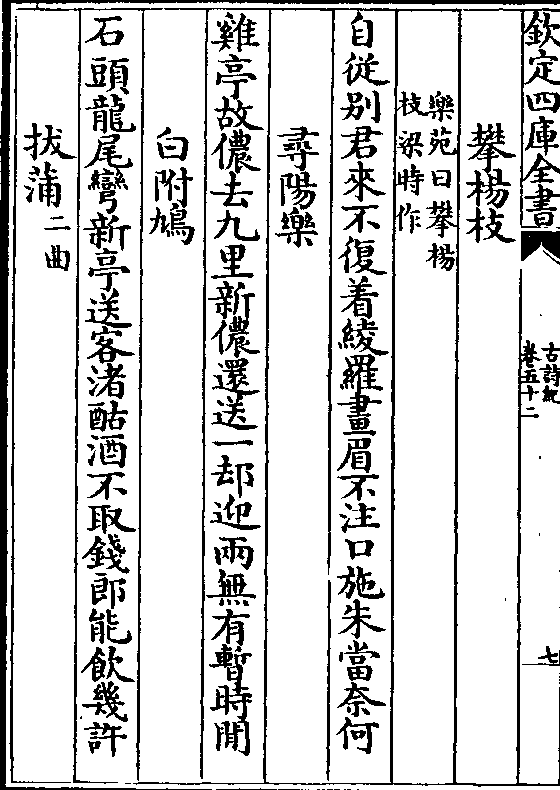 欽定四庫全書
古詩紀
卷五十二
七
攀楊枝
樂苑曰攀楊
枝梁時作
自從別君來不復着綾羅畫眉不注口施朱當奈何
尋陽樂
雞亭故儂去九里新儂還送一却迎兩無有暫時閒
白附鳩
石頭龍尾彎新亭送客渚酤酒不取錢郎能飲幾許
拔蒲二曲